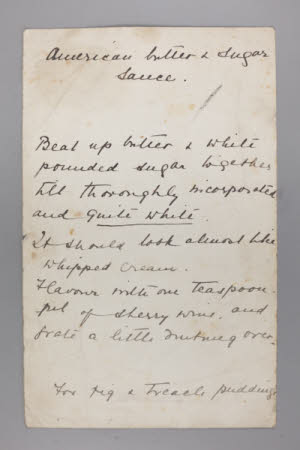 American butter & sugar
sauce.
Beat up butter & white
pounded sugar together
till thoroughly incorporated
and quite white.
It should look almost like
whipped cream.
Flavour with one teaspoon-
ful of sherry wine, and
grate a little nutmeg over.
For fig & treacle pudding